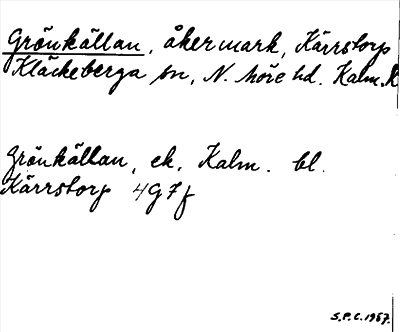 Grönkällan, åkermark, Kärrstorp
Kläckeberga sn, N. Möre hd. Kalm.
Grönkällan, ek. Kalm. bl.
Kärrstorp 4G7f
S.P.C. 1967.